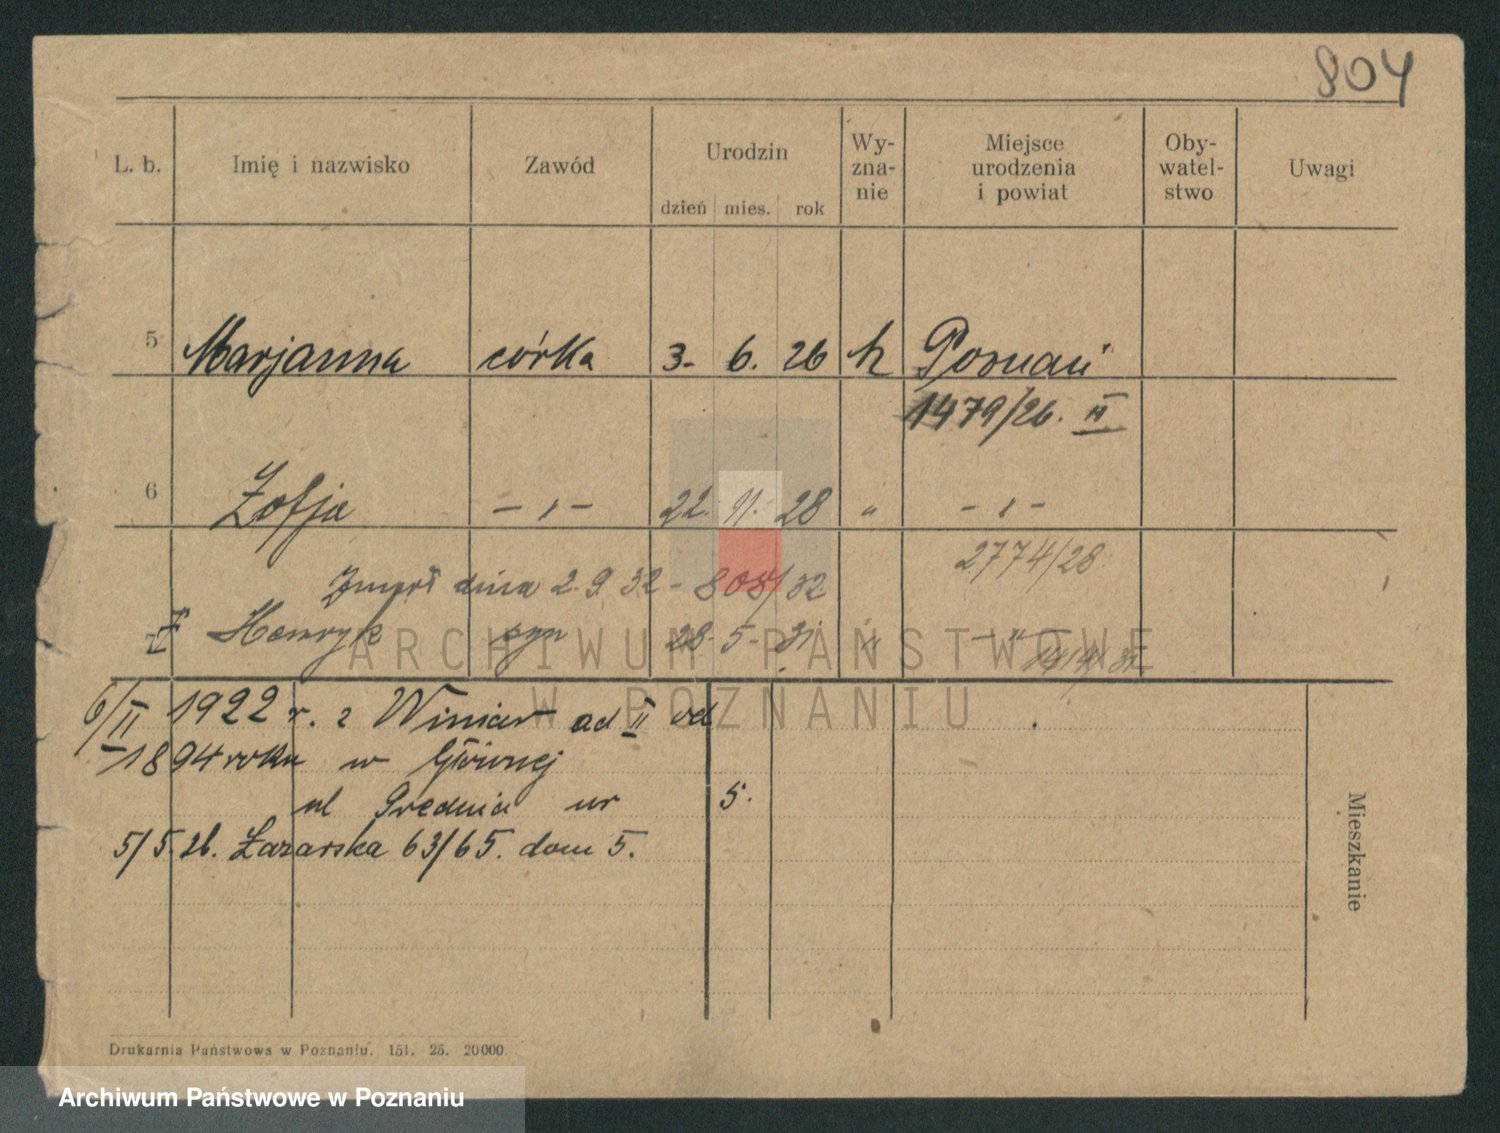 804
L. b. Imię i nazwisko Zawód Urodzin dzień mies. rok Wy-zna-nie Miejsce urodzenia i powiat Oby-watel-stwo Uwagi
5 Marjanna córka 3. 6. 26 k Poznań
1479/26. II
6 Zofja — „ — 22. 11. 28 „ — „ —
2774/28
Zmarł dnia 2. 9. 32 - 808/32
Henryk syn 28. 5. 31 „ — „ —
ARCHIWUM PAŃSTWOWE
W POZNANIU
6/II 1922 r. z Winiar ad II od
1894 roku w Głównej
ul Średnia nr 5.
5/5. 26. Łazarska 63/65. dom 5.
Mieszkanie
Drukarnia Państwowa w Poznaniu. 151. 25. 20000.
Archiwum Państwowe w Poznaniu